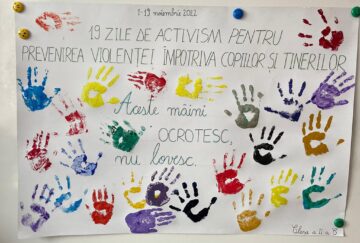 1-19 noiembrie 2022
19 ZILE DE ACTIVISM PENTRU
PREVENIREA VIOLENȚEI ÎMPOTRIVA COPIILOR ȘI TINERILOR
Aceste mâini
OCROTESC,
nu lovesc.
Clasa a II-a B